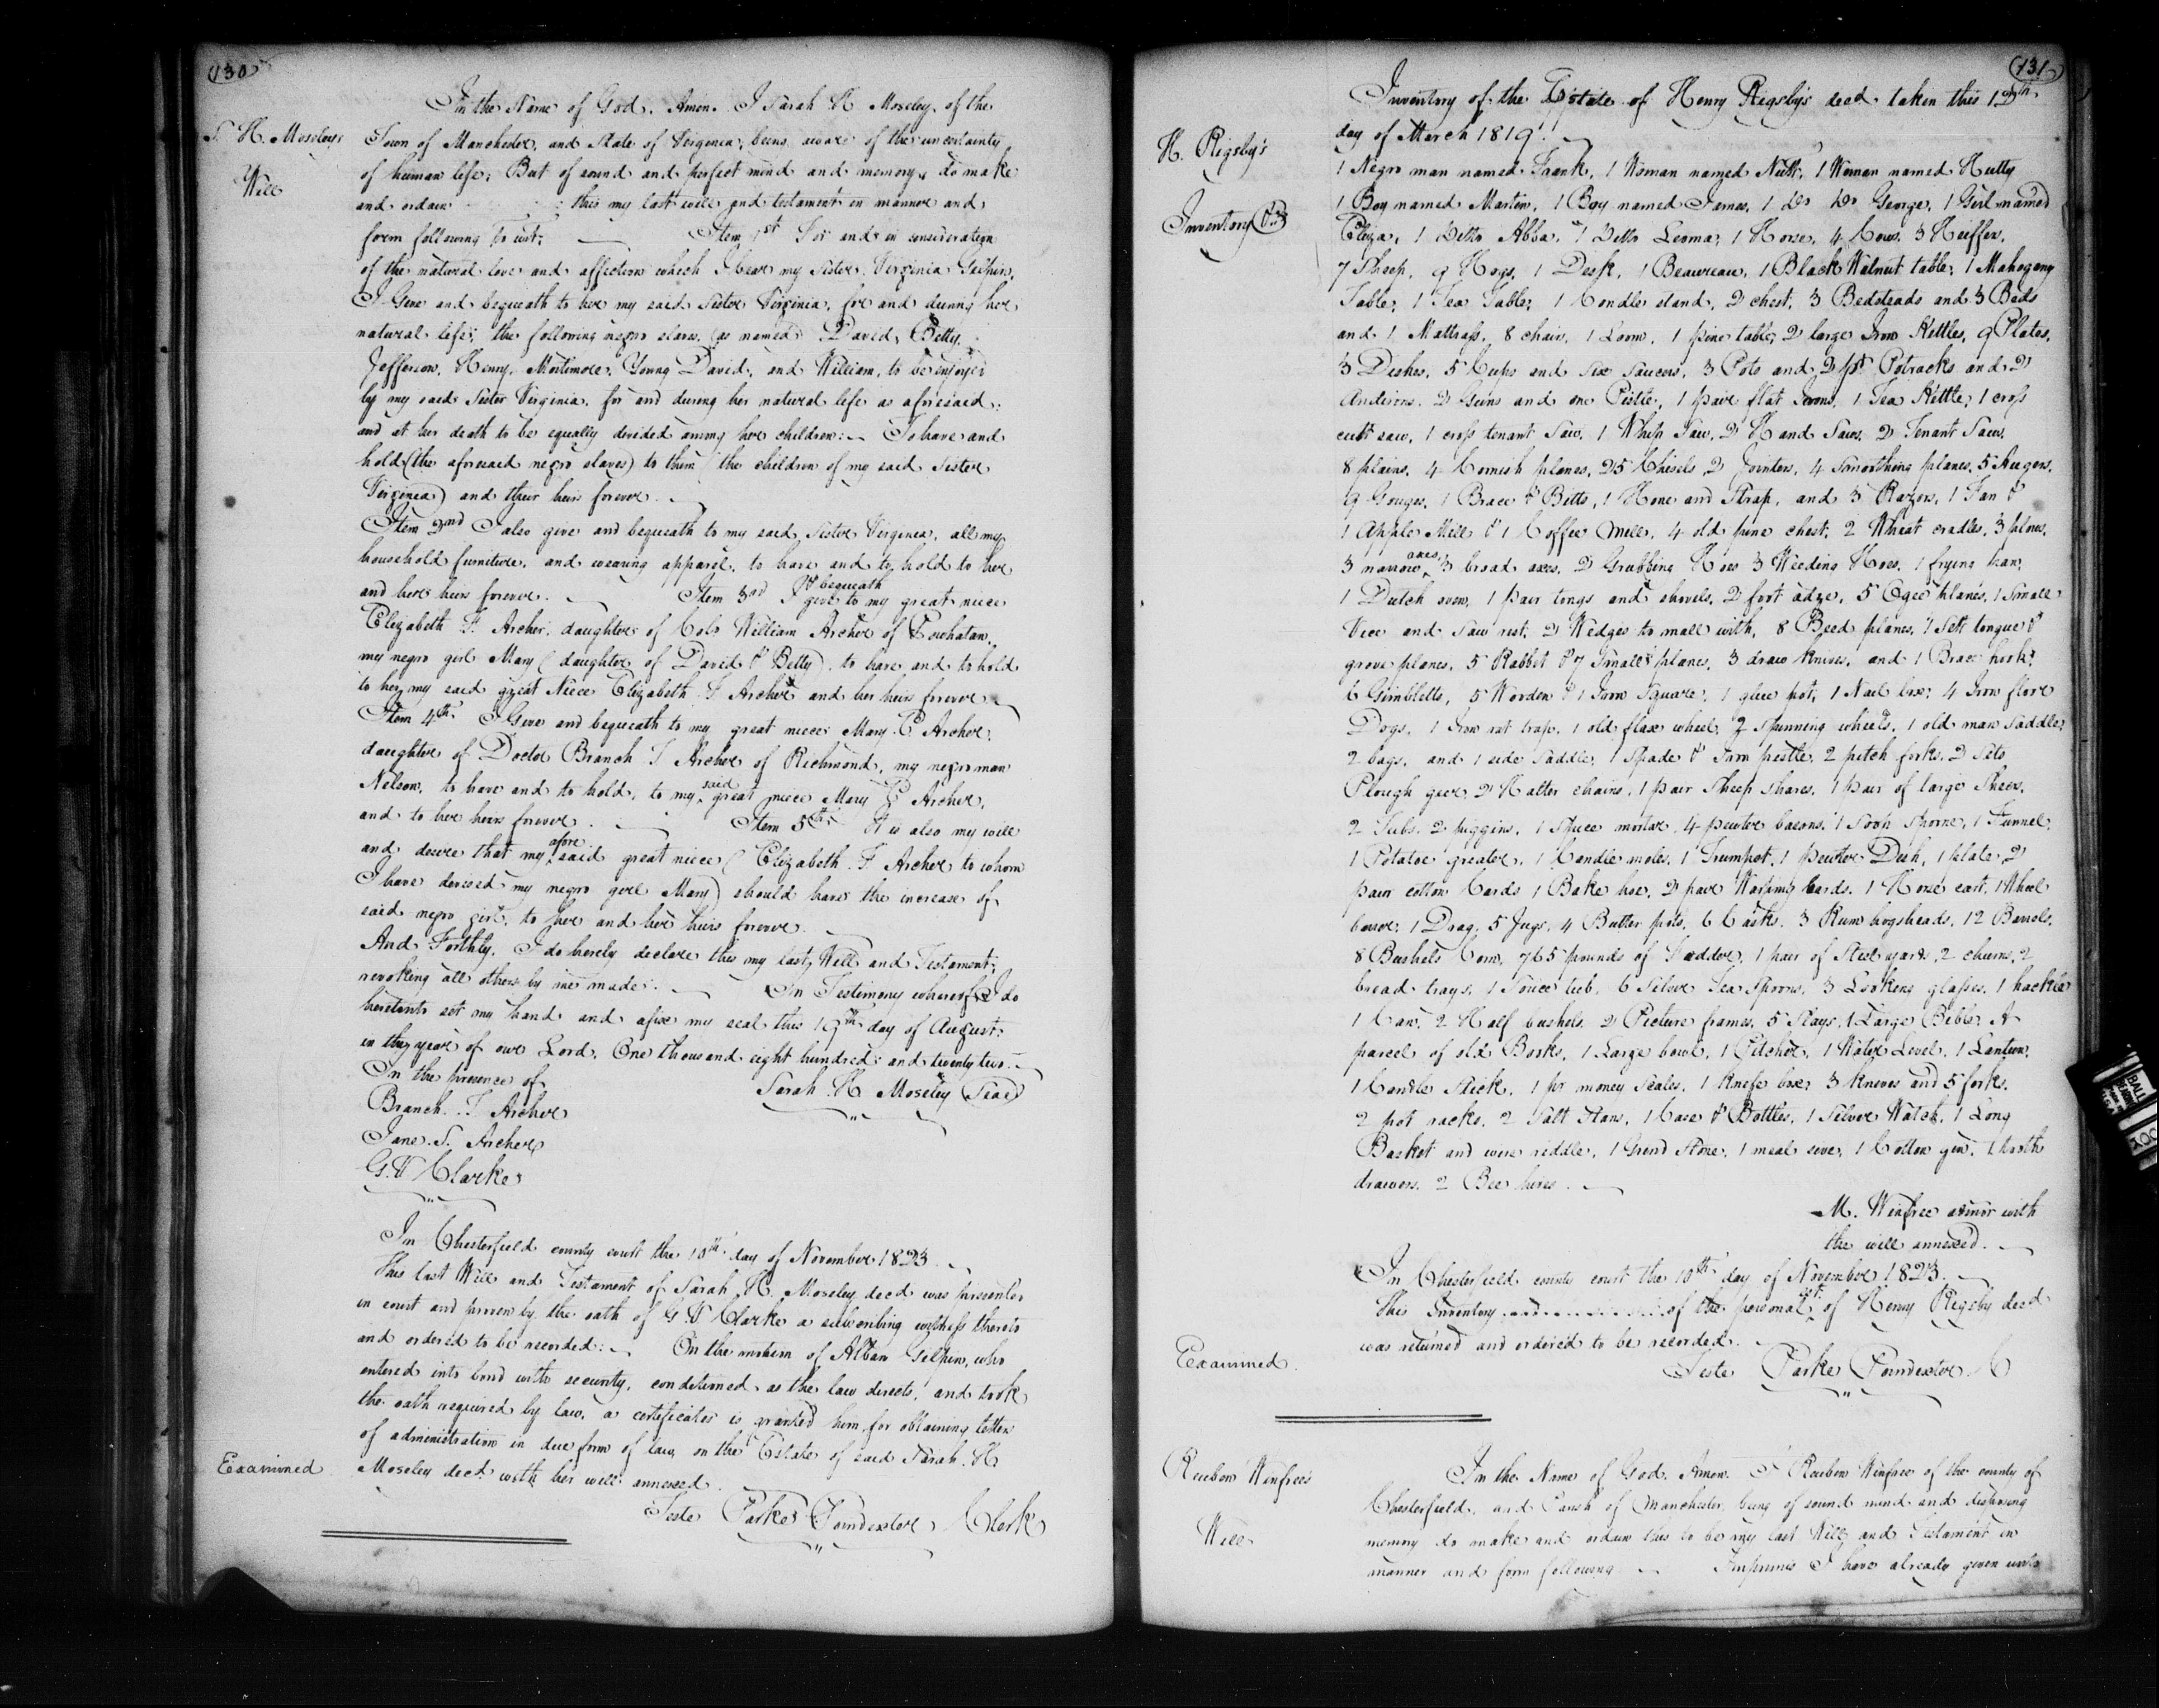 130
In the Name of God, Amen. I Sarah H Moseley, of the
S. H. Moseleys
Town of Manchester, and State of Virginia, being aware of the uncertainty
of human life; But of sound and perfect mind and memory, do make
Will
and ordain this my last will and testament in manner and
form following to wit; Item 1st For and in consideration
of the natural love and affection which I bear my Sister Virginia
I Give and bequeath to her my said Sister Virginia, for and during her
natural life; the following negro slaves, (as named) David, Betty,
Jefferson, Henry, Mortimore, Young David, and William, to be enjoyed
by my said Sister Virginia, for and during her natural life as aforesaid;
and at her death to be equally divided among her children: To have and
hold (the aforesaid negro slaves) to them (the children of my said Sister
Virginia) and their heirs forever.
Item 2nd I also give and bequeath to my said Sister Virginia, all my
household furniture, and wearing apparel, to have and to hold to her
and her heirs forever. Item 3rd I give & bequeath to my great niece
Elizabeth F. Archer, daughter of Colo William Archer of Powhatan,
my negro girl Mary (daughter of David & Betty), to have and to hold
to her, my said great Niece Elizabeth F Archer and her heirs forever
Item 4th I Give and bequeath to my great niece Mary E Archer,
daughter of Doctor Branch T Archer of Richmond, my negro man
Nelson, to have and to hold, to my said great niece Mary E Archer,
and to her heirs forever. Item 5th It is also my will
and desire that my aforesaid great niece (Elizabeth F Archer to whom
I have devised my negro girl Mary) should have the increase of
said negro girl, to her and her heirs forever.
And Forthly, I do hereby declare this my last Will and Testament,
revoking all others by me made. In Testimony whereof I do
hereunto set my hand and afix my seal this 19th day of August
in the year of our Lord, One thousand eight hundred and twenty two.
In the presence of
Sarah H Moseley (Seal)
Branch. T Archer
Jane. S. Archer
G. W Clarke
In Chesterfield county court the 10th day of November 1823
This last Will and Testament of Sarah H. Moseley decd was presented
in court and proven by the oath of G W Clarke a subscribing witness thereto
and ordered to be recorded: On the motion of Alban Gilpin, who
entered into bond with security, conditioned as the law directs, and took
the oath required by law, a certificate is granted him for obtaining letters
of administration in due form of law, on the Estate of said Sarah H
Examined
Moseley decd with her will annexed.
Teste Parke Poindexter Clerk
131
Inventory of the Estate of Henry Rigsby's decd taken this 12th
day of March 1819
H. Rigsby's
1 Negro man named Frank, 1 Woman named 1 Woman named
1 Boy named Martin, 1 Boy named James, 1 Do Do George, 1 Girl named
Inventory
Eliza, 1 Ditto Abba, 1 Ditto 1 Horse, 4 Cows, 3 Heiffers,
7 Sheep, 9 Hogs, 1 Desk, 1 Beaureau, 1 Black Walnut table, 1 Mahogany
Table, 1 Tea Table, 1 Candle stand, 2 chest, 3 Bedsteads and 3 Beds
and 1 Mattrass, 8 chairs, 1 Loom, 1 pine table, 2 large Iron Kettles, 9 Plates,
3 Dishes, 5 Cups and Six Saucers, 3 Pots and 2 pr Potracks and 2
Andirons, 2 Guns and one Pistle, 1 pair flat Irons, 1 Tea Kettle, 1 cross
cutt saw, 1 cross tenant Saw, 1 Whip Saw, 2 Hand Saws, 2 Tenant Saws,
8 plains, 4 Cornish planes, 25 Chisels, 2 Jointers, 4 Smoothing planes, 5 Augers,
9 Gouges, 1 Brace & Bitts, 1 Hone and Strap, and 3 Razors, 1 Fan &
1 Apple Mill & 1 Coffee Mill, 4 old pine chest, 2 Wheat cradles, 3 plows,
3 narrow axes, 3 broad axes, 2 Grubbing Hoes 3 Weeding Hoes, 1 frying pan,
1 Dutch oven, 1 pair tongs and shovels, 2 foot adze, 5 Ogee planes, 1 Small
Vice and Saw rest, 2 Wedges to mall with, 8 Beed planes, 1 Sett tongue &
grove planes, 5 Rabbet & 7 Small planes, 3 draw knives, and 1 Brace hook,
6 Gimbletts, 5 Worden & 1 Iron Square, 1 glue pot, 1 Nail box, 4 Iron flore
Dogs, 1 Iron rat trap, 1 old flax wheel, 2 Spinning wheels, 1 old man Saddle,
2 bags, and 1 side Saddle, 1 Spade & Iron pestle, 2 pitch forks, 2 Sets
Plough geer, 2 Halter chains, 1 pair Sheep Shares, 1 pair of large Shears,
2 Tubs, 2 piggins, 1 Spice mortar, 4 pewter basons, 1 Soop Spoone, 1 Funnel,
1 Potatoe greater, 1 Candle moles, 1 Trumpet, 1 pewter Dish, 1 plate, 2
pair cotton Cards 1 Bake hoe, 2 pair Warping bards, 1 Horse cart, 1 Wheel
barrow, 1 Drag, 5 Jugs, 4 Butter pots, 6 Casks, 3 Rum hogsheads, 12 Barrels,
8 Bushels Corn, 765 pounds of Fodder, 1 pair of Steelyards, 2 churns, 2
bread trays, 1 tub, 6 Silver Tea Spoons, 3 Looking glasses, 1 hackle
1 Can, 2 Half bushels, 2 Picture frames, 5 Slays, 1 Large Bible, A
parcel of old Books, 1 Large bowl, 1 Pitcher, 1 Water Level, 1 Lantern,
1 Candle Stick, 1 pr money Scales, 1 knife box, 3 knives and 5 forks,
2 pot racks, 2 Salt Stans, 1 Case & Bottles, 1 Silver Watch, 1 Long
Basket and wire riddle, 1 Grind Stone, 1 meal seve, 1 Cotton gin, 1
drawers, 2 Bee hives.
M. Winfree admor with
the will annexed.
In Chesterfield county court the 10th day of November 1823.
This Inventory of the personal est. of Henry Rigsby decd
was returned and ordered to be recorded.
Examined.
Teste Parke Poindexter C
Reuben Winfree's
In the Name of God, Amen. I Reuben Winfree of the county of
Chesterfield, and Parish of Manchester, being of sound mind and disposing
Will
memory do make and ordain this to be my last Will and Testament in
manner and form following Imprimis I have already given unto